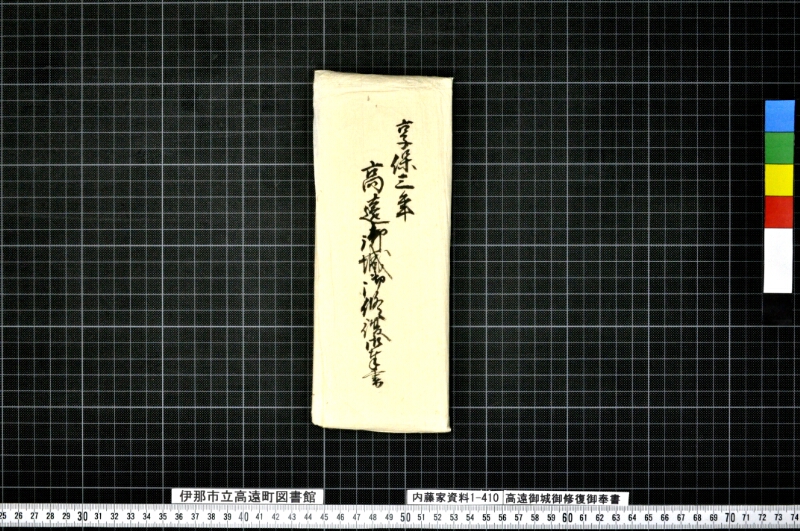 享保三年
高遠御城御修復御奉書
伊那市立高遠町図書館
内藤家資料1-410
高遠御城御修復御奉書
25 26 27 28 29 30 31 32 33 34 35 36 37 38 39 40 41 42 43 44 45 46 47 48 49 50 51 52 53 54 55 56 57 58 59 60 61 62 63 64 65 66 67 68 69 70 71 72 73 74